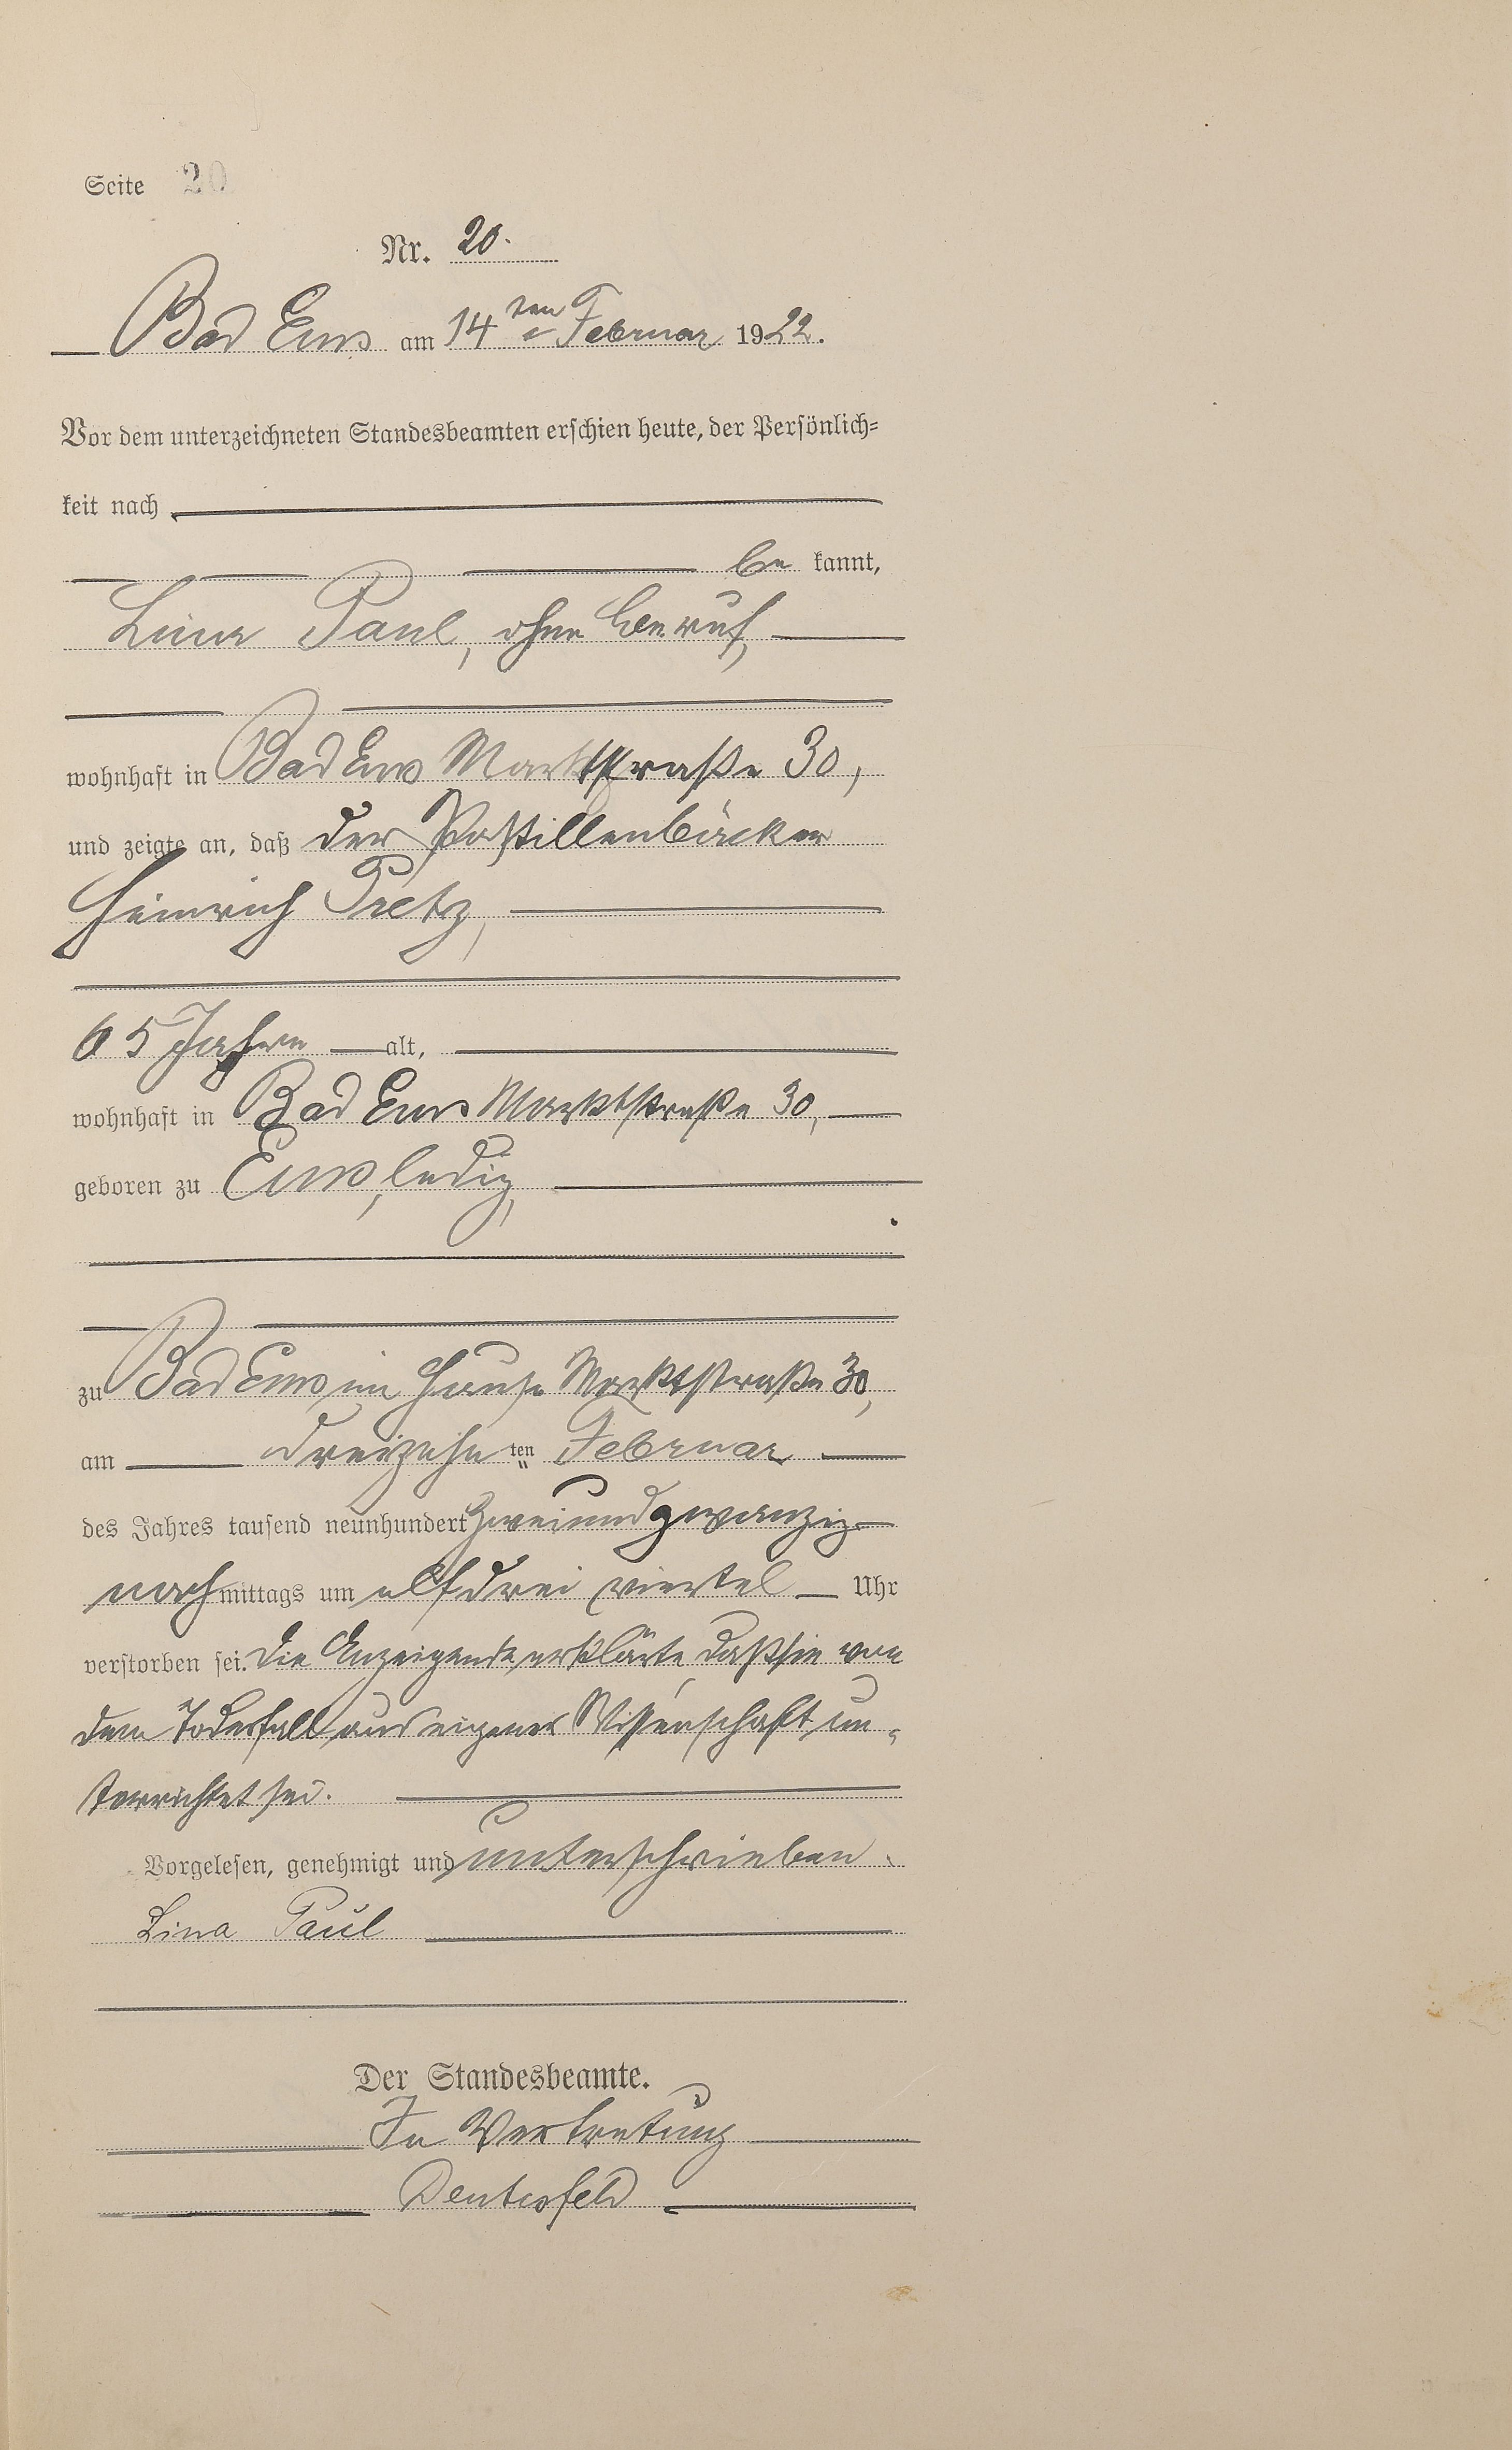 Seite 20
Nr. 20.
Bad Ems am 14ten Februar 1922.
Vor dem unterzeichneten Standesbeamten erschien heute, der Persönlich-
keit nach
be kannt,
Lina Paul, ohne Beruf,
wohnhaft in Bad Ems Marktstraße 30,
und zeigte an, daß der Pastillenbäcker
Heinrich
65 Jahre alt,
wohnhaft in Bad Ems Marktstraße 30,
geboren zu Ems, ledig,
zu Bad Ems im Hause Marktstraße 30,
am dreizehnten Februar
des Jahres tausend neunhundert zweiundzwanzig
nachmittags um elf drei viertel Uhr
verstorben sei. Die Anzeigende erklärte, daß sie von
dem Todesfall aus eigener Wissenschaft un-
terrichtet sei.
Vorgelesen, genehmigt und unterschrieben.
Lina Paul
Der Standesbeamte.
In Vertretung